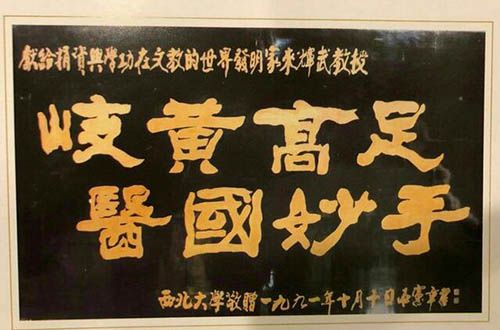 獻給捐資興學功在文教的世界發明家來輝武教授
岐黃高足
醫國妙手
西北大學敬贈一九九一年十月十日